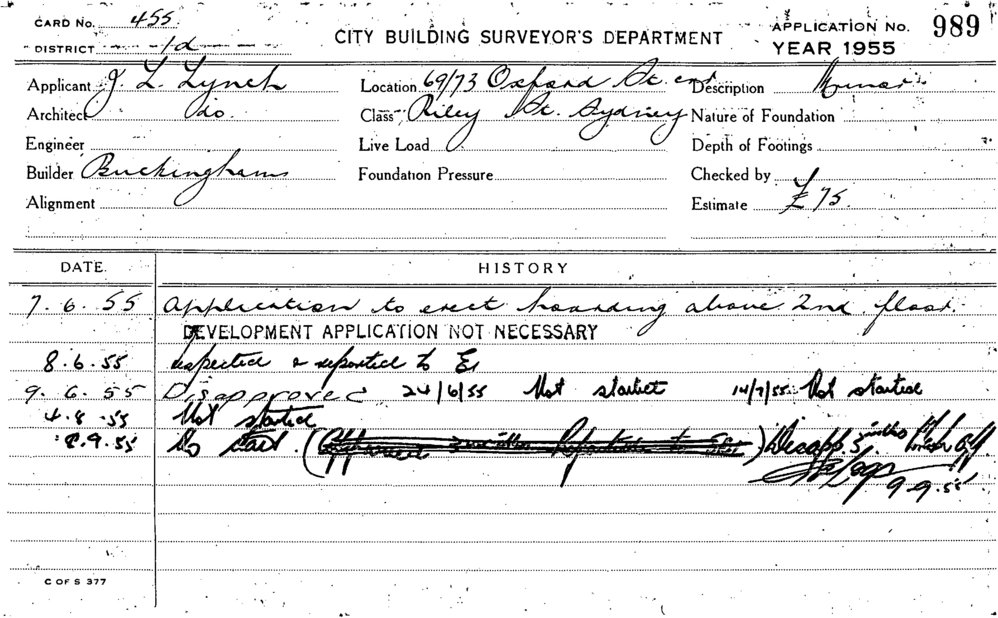 CARD No. 455
DISTRICT 1d
CITY BUILDING SURVEYOR'S DEPARTMENT
APPLICATION No. 989
YEAR 1955
Applicant J. L. Lynch
Location 69/73 Oxford St cnr
Description Minor
Architect do.
Class Riley St. Sydney
Nature of Foundation
Engineer
Live Load
Depth of Footings
Builder Buckinghams
Foundation Pressure
Checked by
Alignment
Estimate £75.
DATE.
HISTORY
7.6.55 Application to erect hoarding above 2nd floor.
DEVELOPMENT APPLICATION NOT NECESSARY
8.6.55 Inspected & reported to
9.6.55 Disapproved 24/6/55 Not started 14/7/55 Not started
4.8.55 Not started
9.55 No start. ( ) Disapp.
9.9.55
C OF S 377